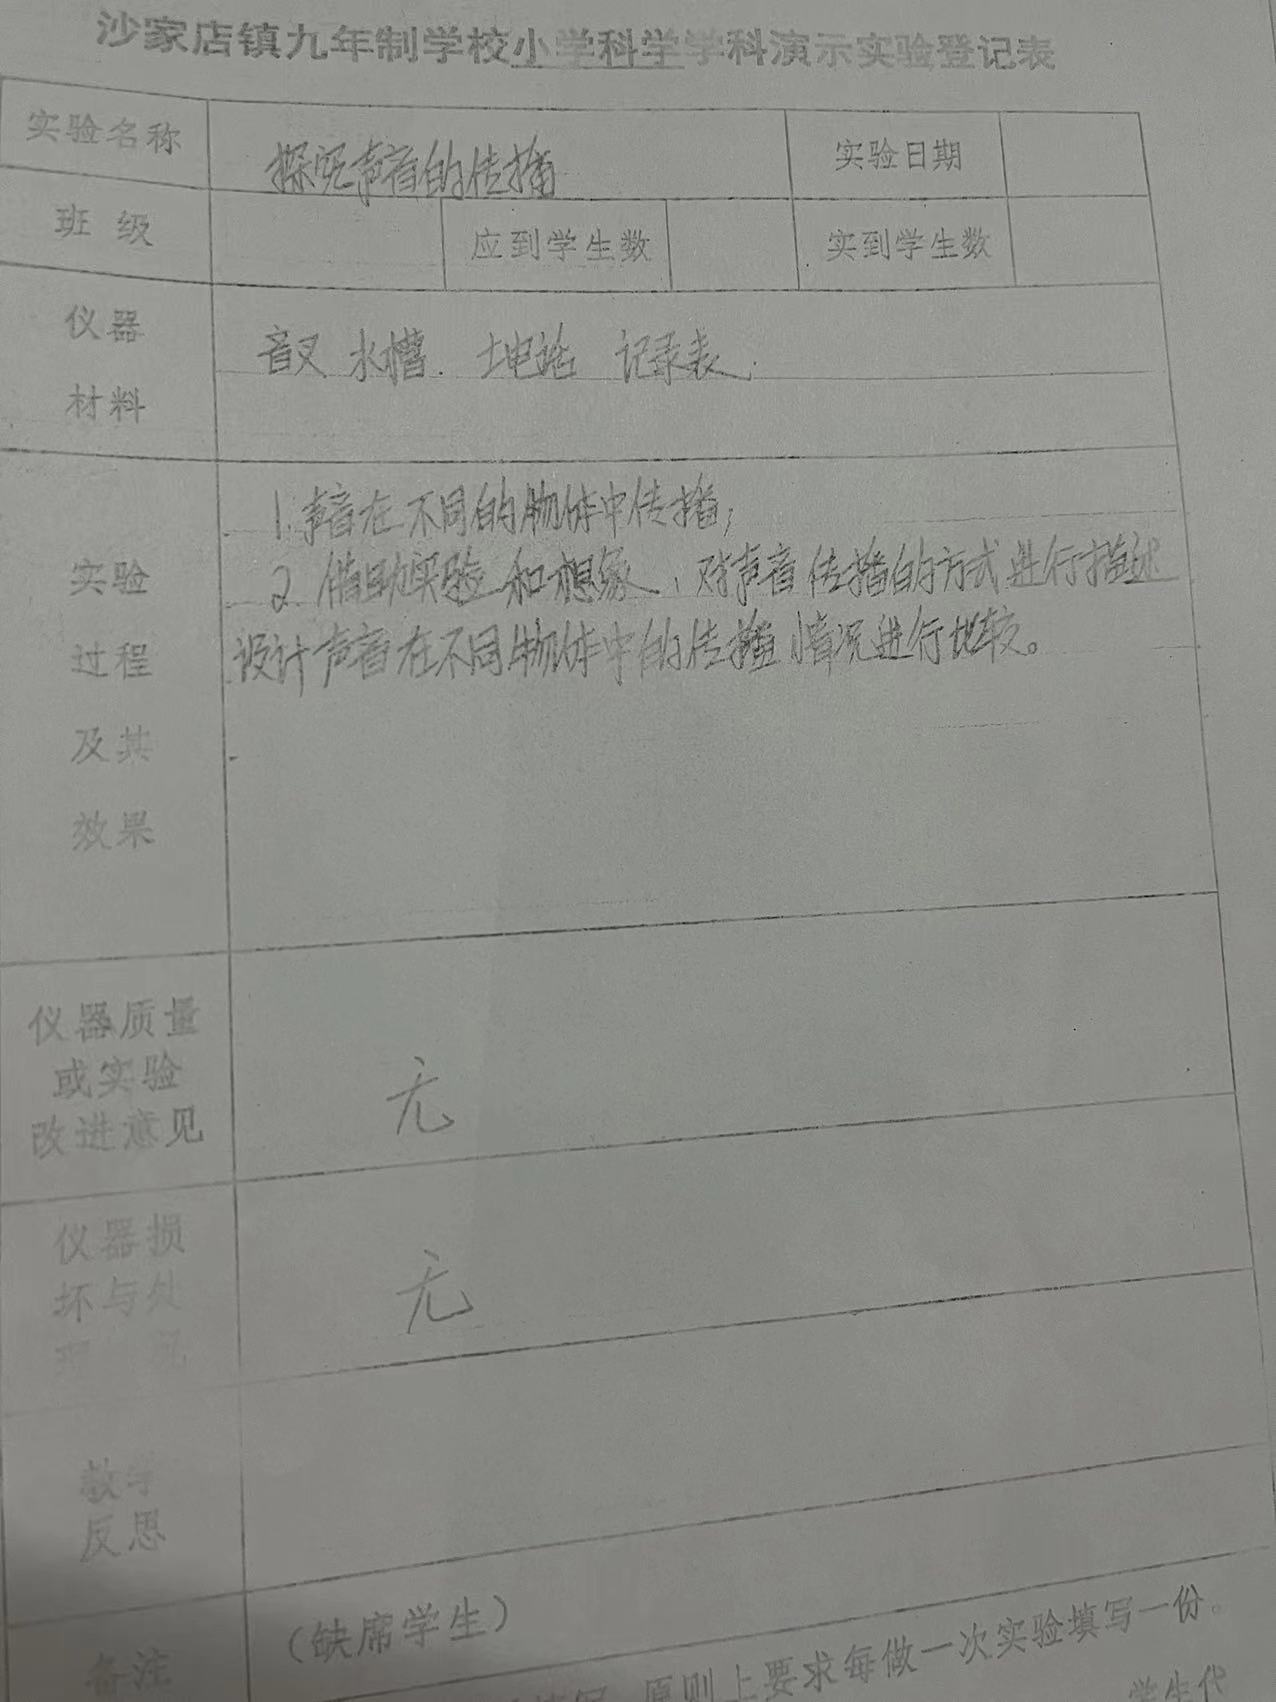 沙家店镇九年制学校小学科学学科演示实验登记表
实验名称 探究声音的传播 实验日期
班 级 应到学生数 实到学生数
仪器
材料
音叉 水槽. 土电话 记录表.
实验
过程
及其
效果
1. 声音在不同的物体中传播;
2 借助实验和想象、对声音传播的方式进行描述
设计声音在不同物体中的传播情况进行比较。
仪器质量
或实验
改进意见
无
仪器损
坏与处
理 况
无
教学
反思
备注
(缺席学生)
原则上要求每做一次实验填写一份。
学生代